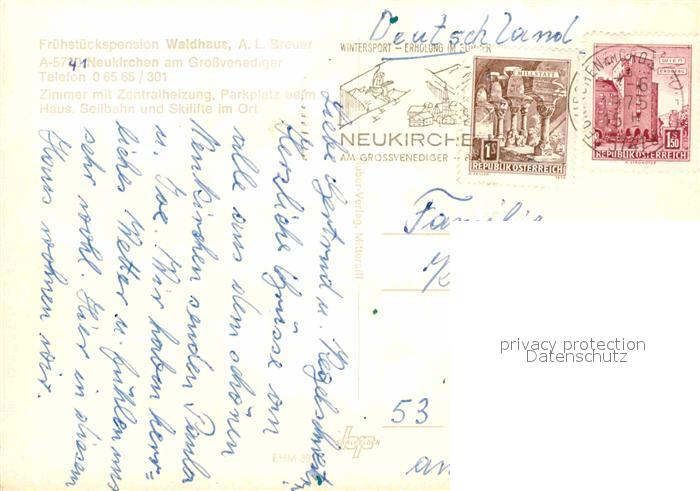 Frühstückspension Waldhaus, A. L. Breuer
A-5741 Neukirchen am Großvenediger
Telefon 0 65 65 / 301
Zimmer mit Zentralheizung, Parkplatz beim
Haus. Seilbahn und Skilifte im Ort
Deutschland
WINTERSPORT - ERHOLUNG IM SOMMER
NEUKIRCHEN
AM GROSSVENEDIGER
MILLSTATT
1 S
REPUBLIK ÖSTERREICH
WIEN
ERDBERG
1.50
REPUBLIK ÖSTERREICH
Liebe Gertrud u. Kegelschwestern
Herzliche Grüsse an
alle aus dem schönen
Neukirchen senden Paula
u. Joe. Wir haben herr-
liches Wetter u. fühlen uns
sehr wohl. Hier in diesem
Haus wohnen wir.
Huber-Verlag, Mittersill
Familie
K
53
an
EHM 39
bp
privacy protection
Datenschutz